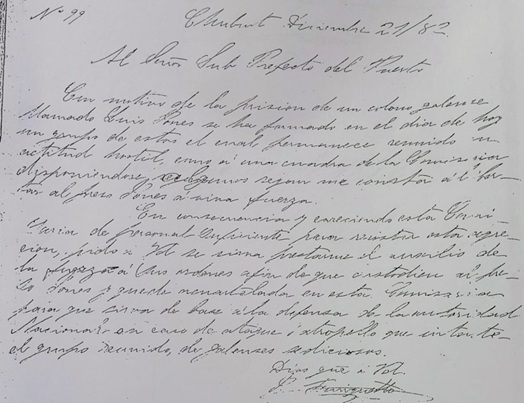 Nº 99
Chubut Diciembre 21/82
Al Señor Sub Prefecto del Puerto
Con motivo de la prision de un colono galense
llamado Luis Jones se ha formado en el dia de hoy
un grupo de estos el cual permanece reunido en
actitud hostil, como a una cuadra de la Comisaria
disponiendose, segun me consta á li ber
tar al preso Jones á viva fuerza.
En consecuencia y careciendo esta Comi-
saria de personal suficiente para resistir esta agre-
cion, pido a Vd se sirva prestarme el auxilio de
la fuerza á sus ordenes afin de que custodien al pre-
so Jones y quede en esta Comisaria
para que sirva de base á la defensa de la autoridad
Nacional en caso de ataque ó atropello que intente
el grupo reunido de galenses sediciosos.
Dios gue á Vd.